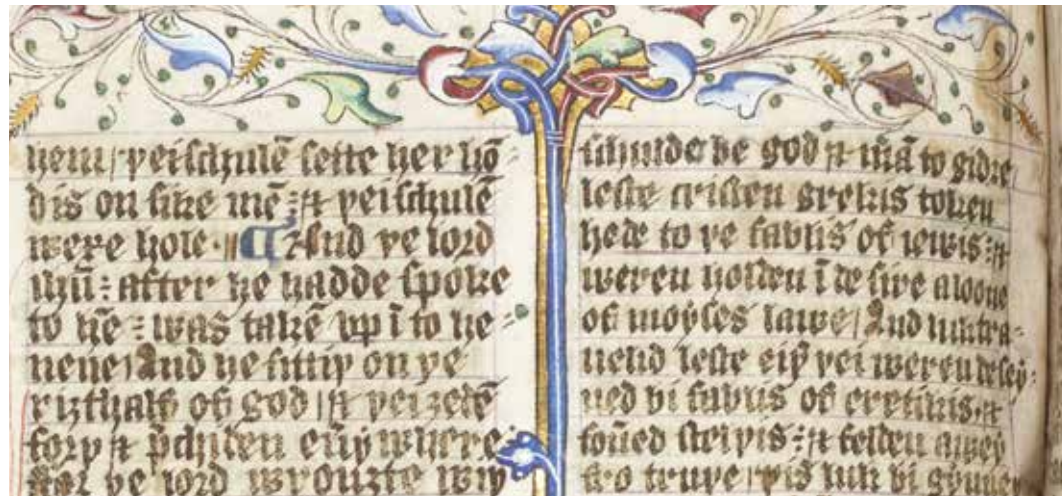 hem / þei schulē sette her hō-
dis on sike mē : & þei schulē
wexe hole · ¶ And þe lord
ihū : after he hadde spoke
to hē : was takē vp ī to he-
uene / And he sittiþ on þe
riȝthalf of god / & þei ȝedē
forþ & p̄chiden eūy where :
for þe lord wrouȝte wiþ
schulde be god & mā to gidre
leste cristen grekis token
hede to þe fablis of iewis : &
weren holden ī de sire aloone
of moyses lawe / And
leste eiþ þei weren desey-
ued bi fablis of eretikis · &
: & felden awey
fro truþe / þis luk bi gynneþ